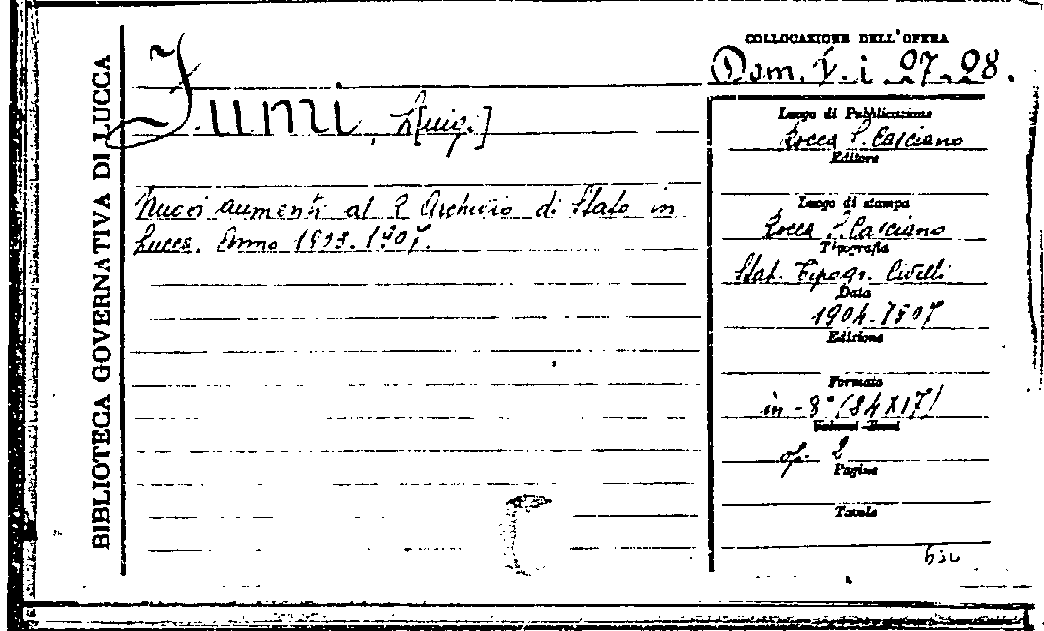 BIBLIOTECA GOVERNATIVA DI LUCCA
Fumi, L[uig.]
Nuovi aumenti al R Archivio di Stato in
Lucca. Anno 1903.1907.
COLLOCAZIONE DELL'OPERA
Dom. V. i. 97.98.
Luogo di Pubblicazione
Rocca S. Casciano
Editore
Luogo di stampa
Rocca S. Casciano
Tipografia
Stab. Tipogr. Civelli
Data
1904-1907
Edizione
Formato
in-8° (24X17)
Volumi
op. 2
Pagine
Tavole